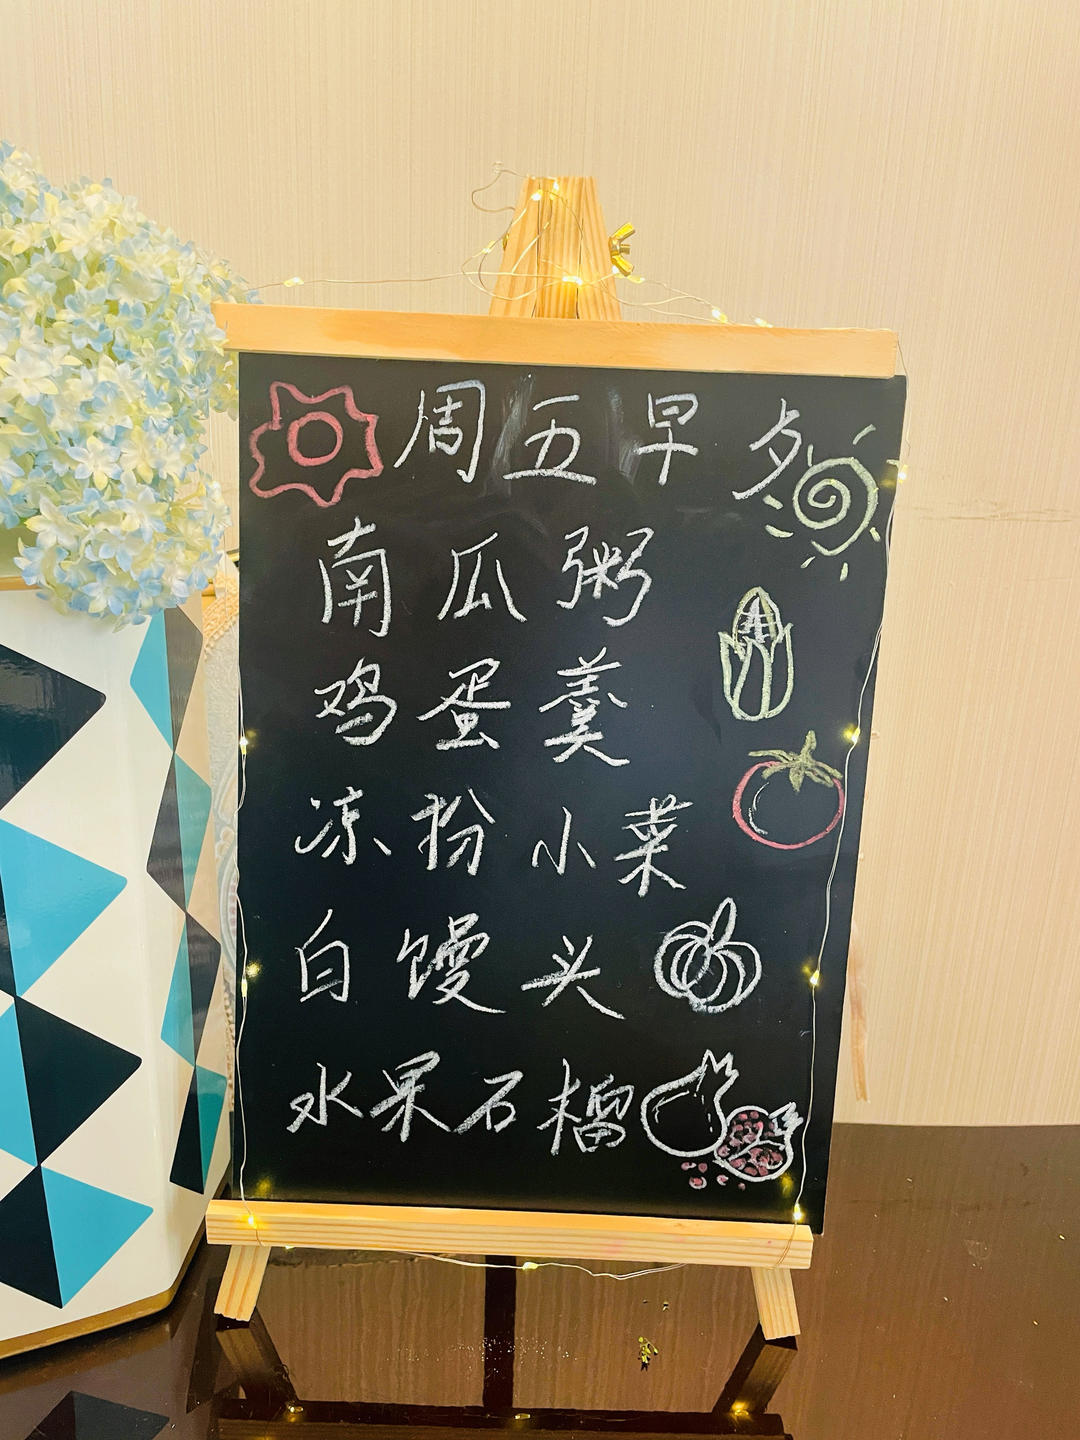 周五早夕
南瓜粥
鸡蛋羹
凉扮小菜
白馒头
水果石榴